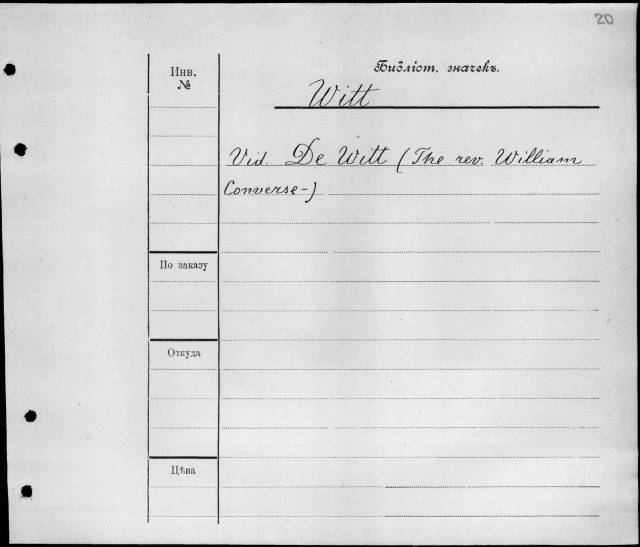 20
Инв.
№
Библіот. значекъ.
Witt
Vid. De Witt (The rev. William
Converse-)
По заказу
Откуда
Цѣна